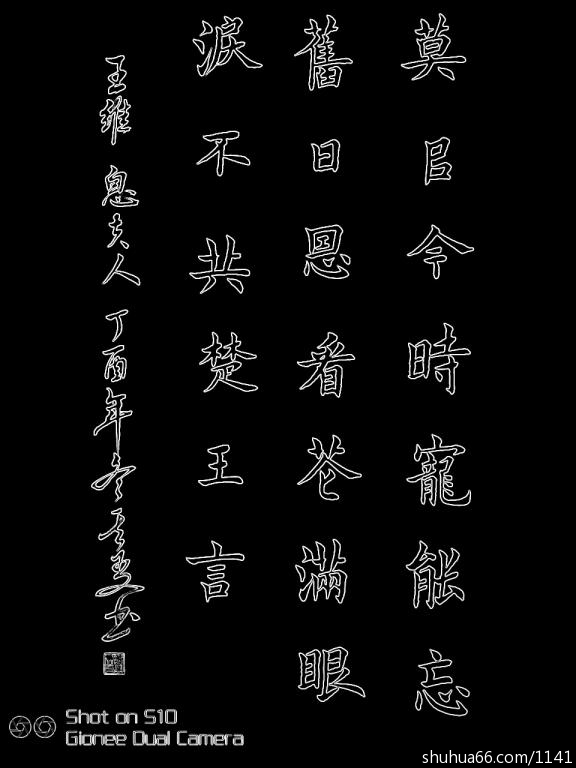 莫㠯今時寵能忘
舊日恩看花滿眼
淚不共楚王言
王維 息夫人 丁酉年冬 书
Shot on S10
Gionee Dual Camera
shuhua66.com/1141